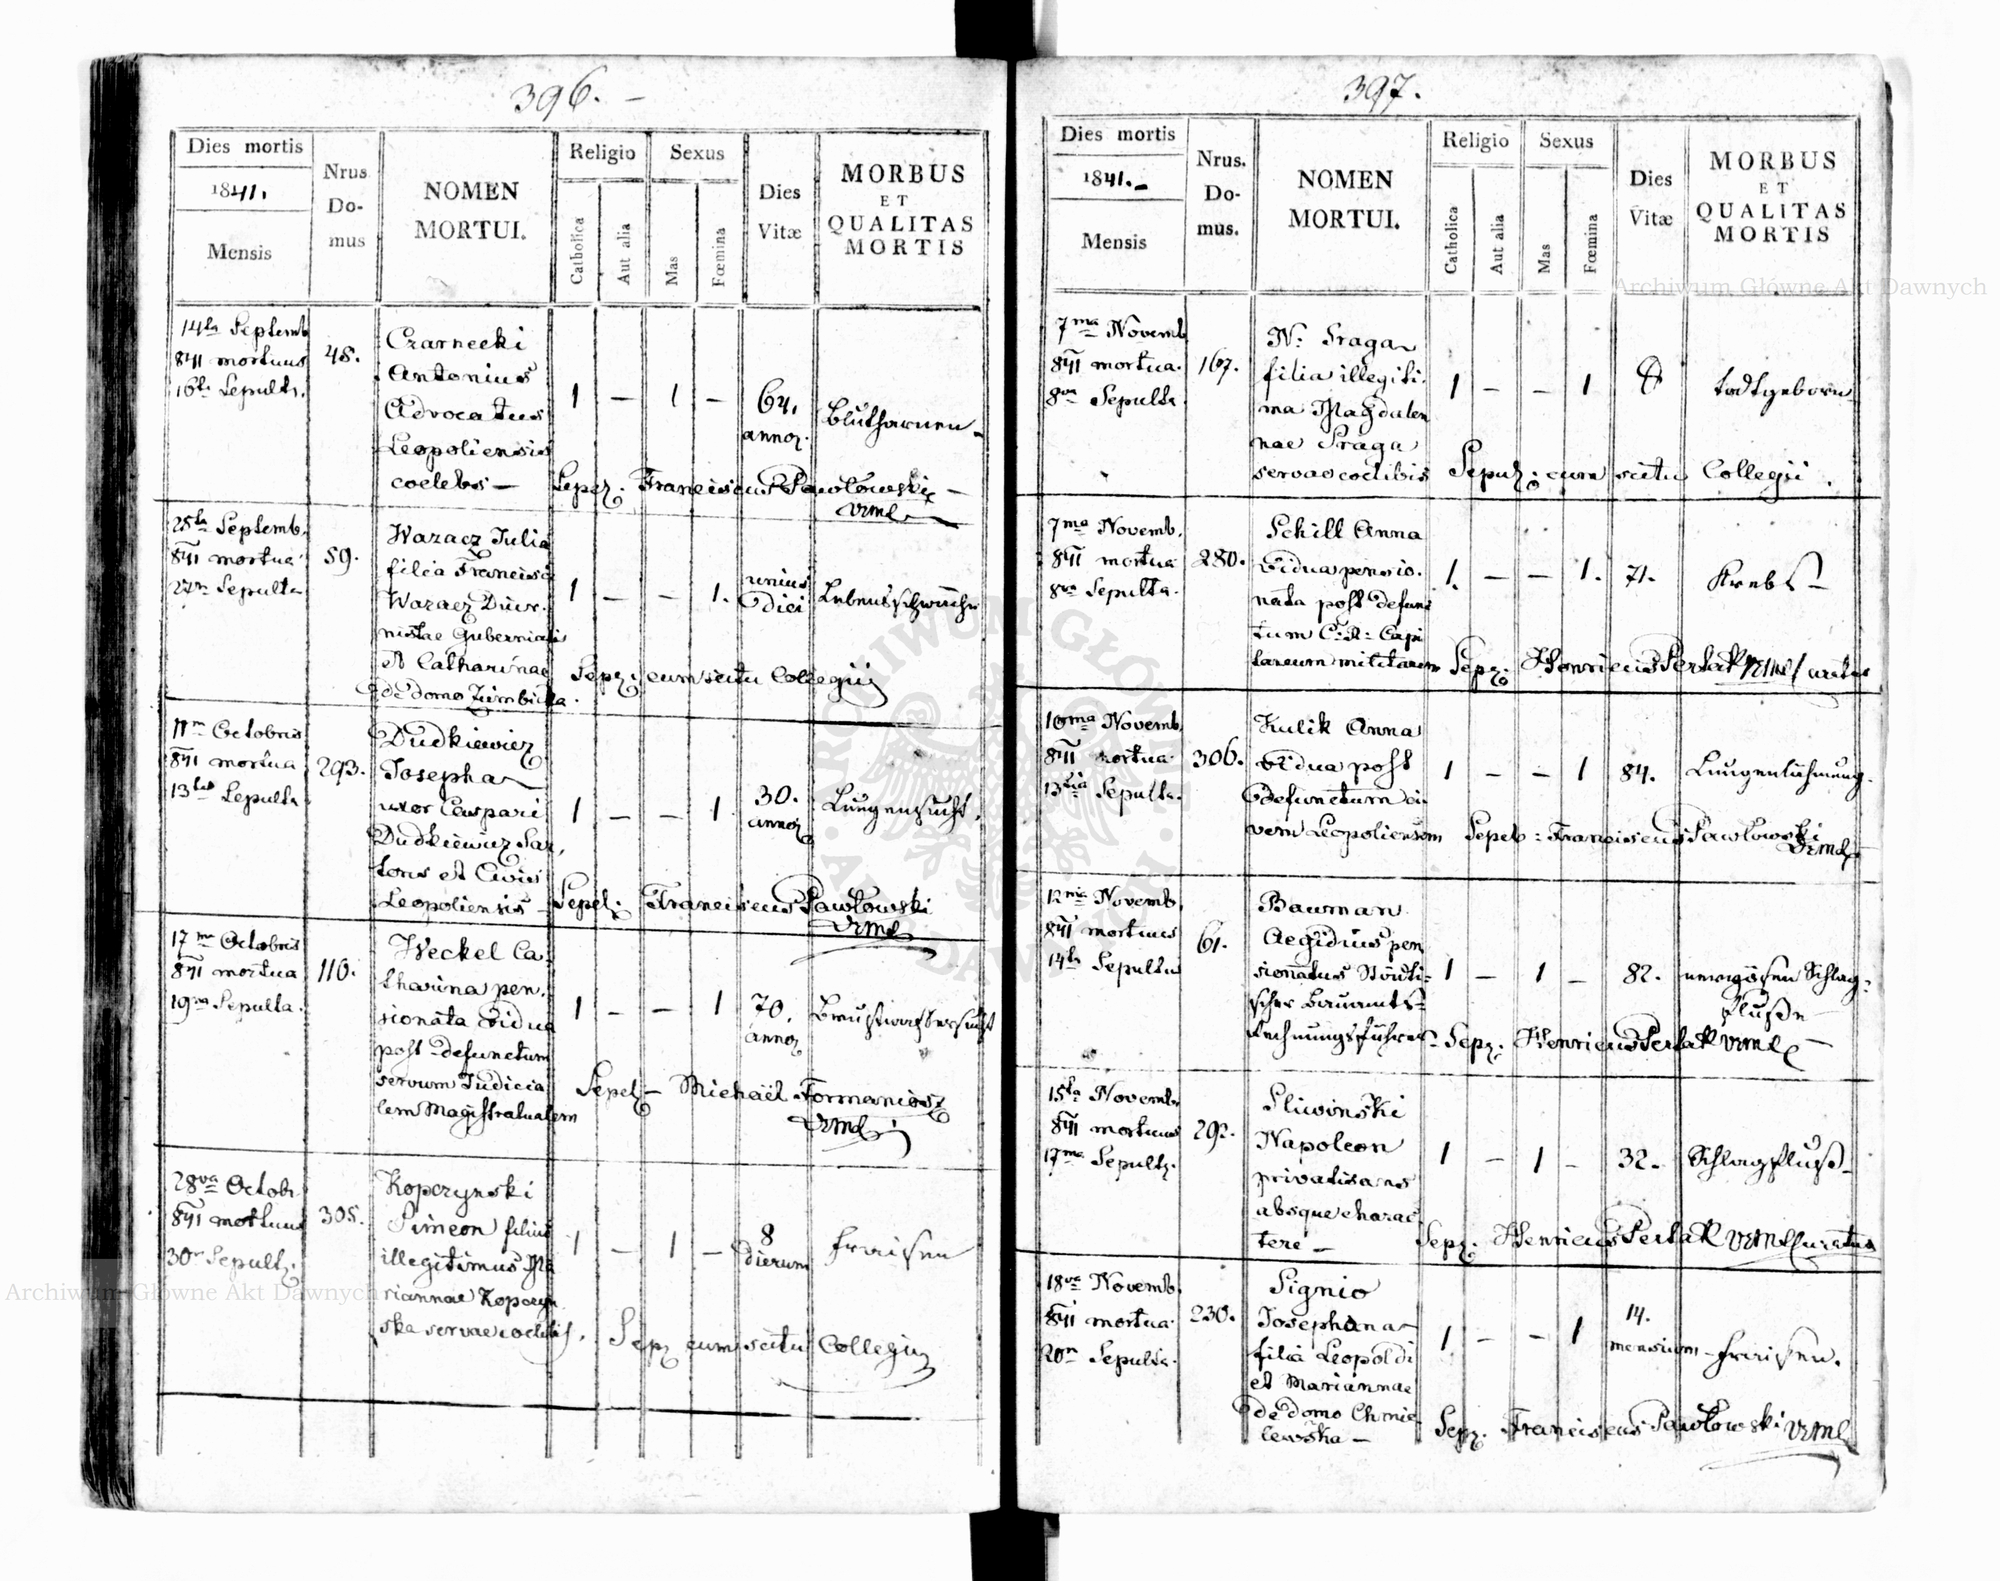 396. –
Dies mortis
1841.
Mensis
Nrus
Do-
mus
NOMEN
MORTUI.
Religio
Catholica
Aut alia
Sexus
Mas
Fœmina
Dies
Vitæ
MORBUS
ET
QUALITAS
MORTIS
14ta Septemb
841 mortuus
16ta Sepult.
48.
Czarnecki
Antonius
Advocatus
Leopoliensis
coelebs —
1 — 1 —
64.
annor.
Blutharnen –
Sepel. Franciscus Pawłowski
vrml
25ta Septemb.
841 mortua
27ma Sepulta
59.
Waracz Julia
filia Francisci
Waracz Diur-
nistae Gubernialis
et Catharinae
de domo Zumbicka.
1 — — 1.
unius
diei
Lebensschwäche
Sepz. cum scitu Collegii
11ma Octobris
841 mortua
13tia Sepulta
293.
Dudkiewicz
Josepha
uxor Caspari
Dudkiewicz Sar-
toris et Civis
Leopoliensis –
1 — — 1
30.
annor
Lungensucht.
Sepel. Franciscus Pawłowski
vrml
17ma Octobris
841 mortua
19na Sepulta.
110.
Weckel Ca-
tharina pen-
sionata vidua
post defunctum
servum Judicia-
lem Magistratualem
1 — — 1
70.
annor
Brustwassersucht
Sepel – Michaël Formaniosz
vrml
28va Octobr
841 mortuus
30 Sepult.
305.
Kopczynski
Simeon filius
illegitimus Ma
riannae Kopczyn
ska servae coelibis.
1 — 1 —
8
dierum
Fraisen
Sep. cum scitu Collegii
397.
Dies mortis
1841.
Mensis
Nrus.
Do-
mus.
NOMEN
MORTUI.
Religio
Catholica
Aut alia
Sexus
Mas
Fœmina
Dies
Vitæ
MORBUS
ET
QUALITAS
MORTIS
7ma Novemb
841 mortua
8va Sepulta
167.
N. Praga
filia illegiti-
ma Magdale
nae Praga
servae coelibis
1 — — 1
todtgeboren
Sepul. cum scitu Collegii.
7ma Novemb.
841 mortua
8va Sepulta.
280.
Schill Anna
vidua pensio-
nata post defunc
tum C: R: Capi
taneum militarem
1. — — 1. 71.
Krebs –
Sepz. Henricus Pertak vrml Curatus
10ma Novemb.
841 mortua
13tia Sepulta.
306.
Kulik Anna
vidua post
defunctum ci-
vem Leopoliensem
1 — — 1 84.
Lungenlähmung.
Sepel: Franciscus Pawłowski
vrml
12ma Novemb.
841 mortuus
14ta Sepultus
61.
Bauman
Aegidius pen
sionatus Städti-
scher Bauamts-
Rechnungsführer
1 — 1 — 82.
nervösen Schlag-
fluße –
Sepz. Henricus Pertak vrml
15ta Novemb
841 mortuus
17ma Sepult.
292.
Sliwinski
Napoleon
privatisans
absque charac-
tere —
1 — 1 — 32.
Schlagfluß –
Sepz. Henricus Pertak vrml Curatus
18va Novemb.
841 mortua
20ma Sepulta.
230.
Signio
Josephina
filia Leopoldi
et Mariannae
de domo Chmie
lewska —
1 — — 1
14.
mensium
Fraisen.
Sepz. Franciscus Pawłowski vrml
Archiwum Główne Akt Dawnych
Archiwum Główne Akt Dawnych
ARCHIWUM GŁÓWNE AKT DAWNYCH